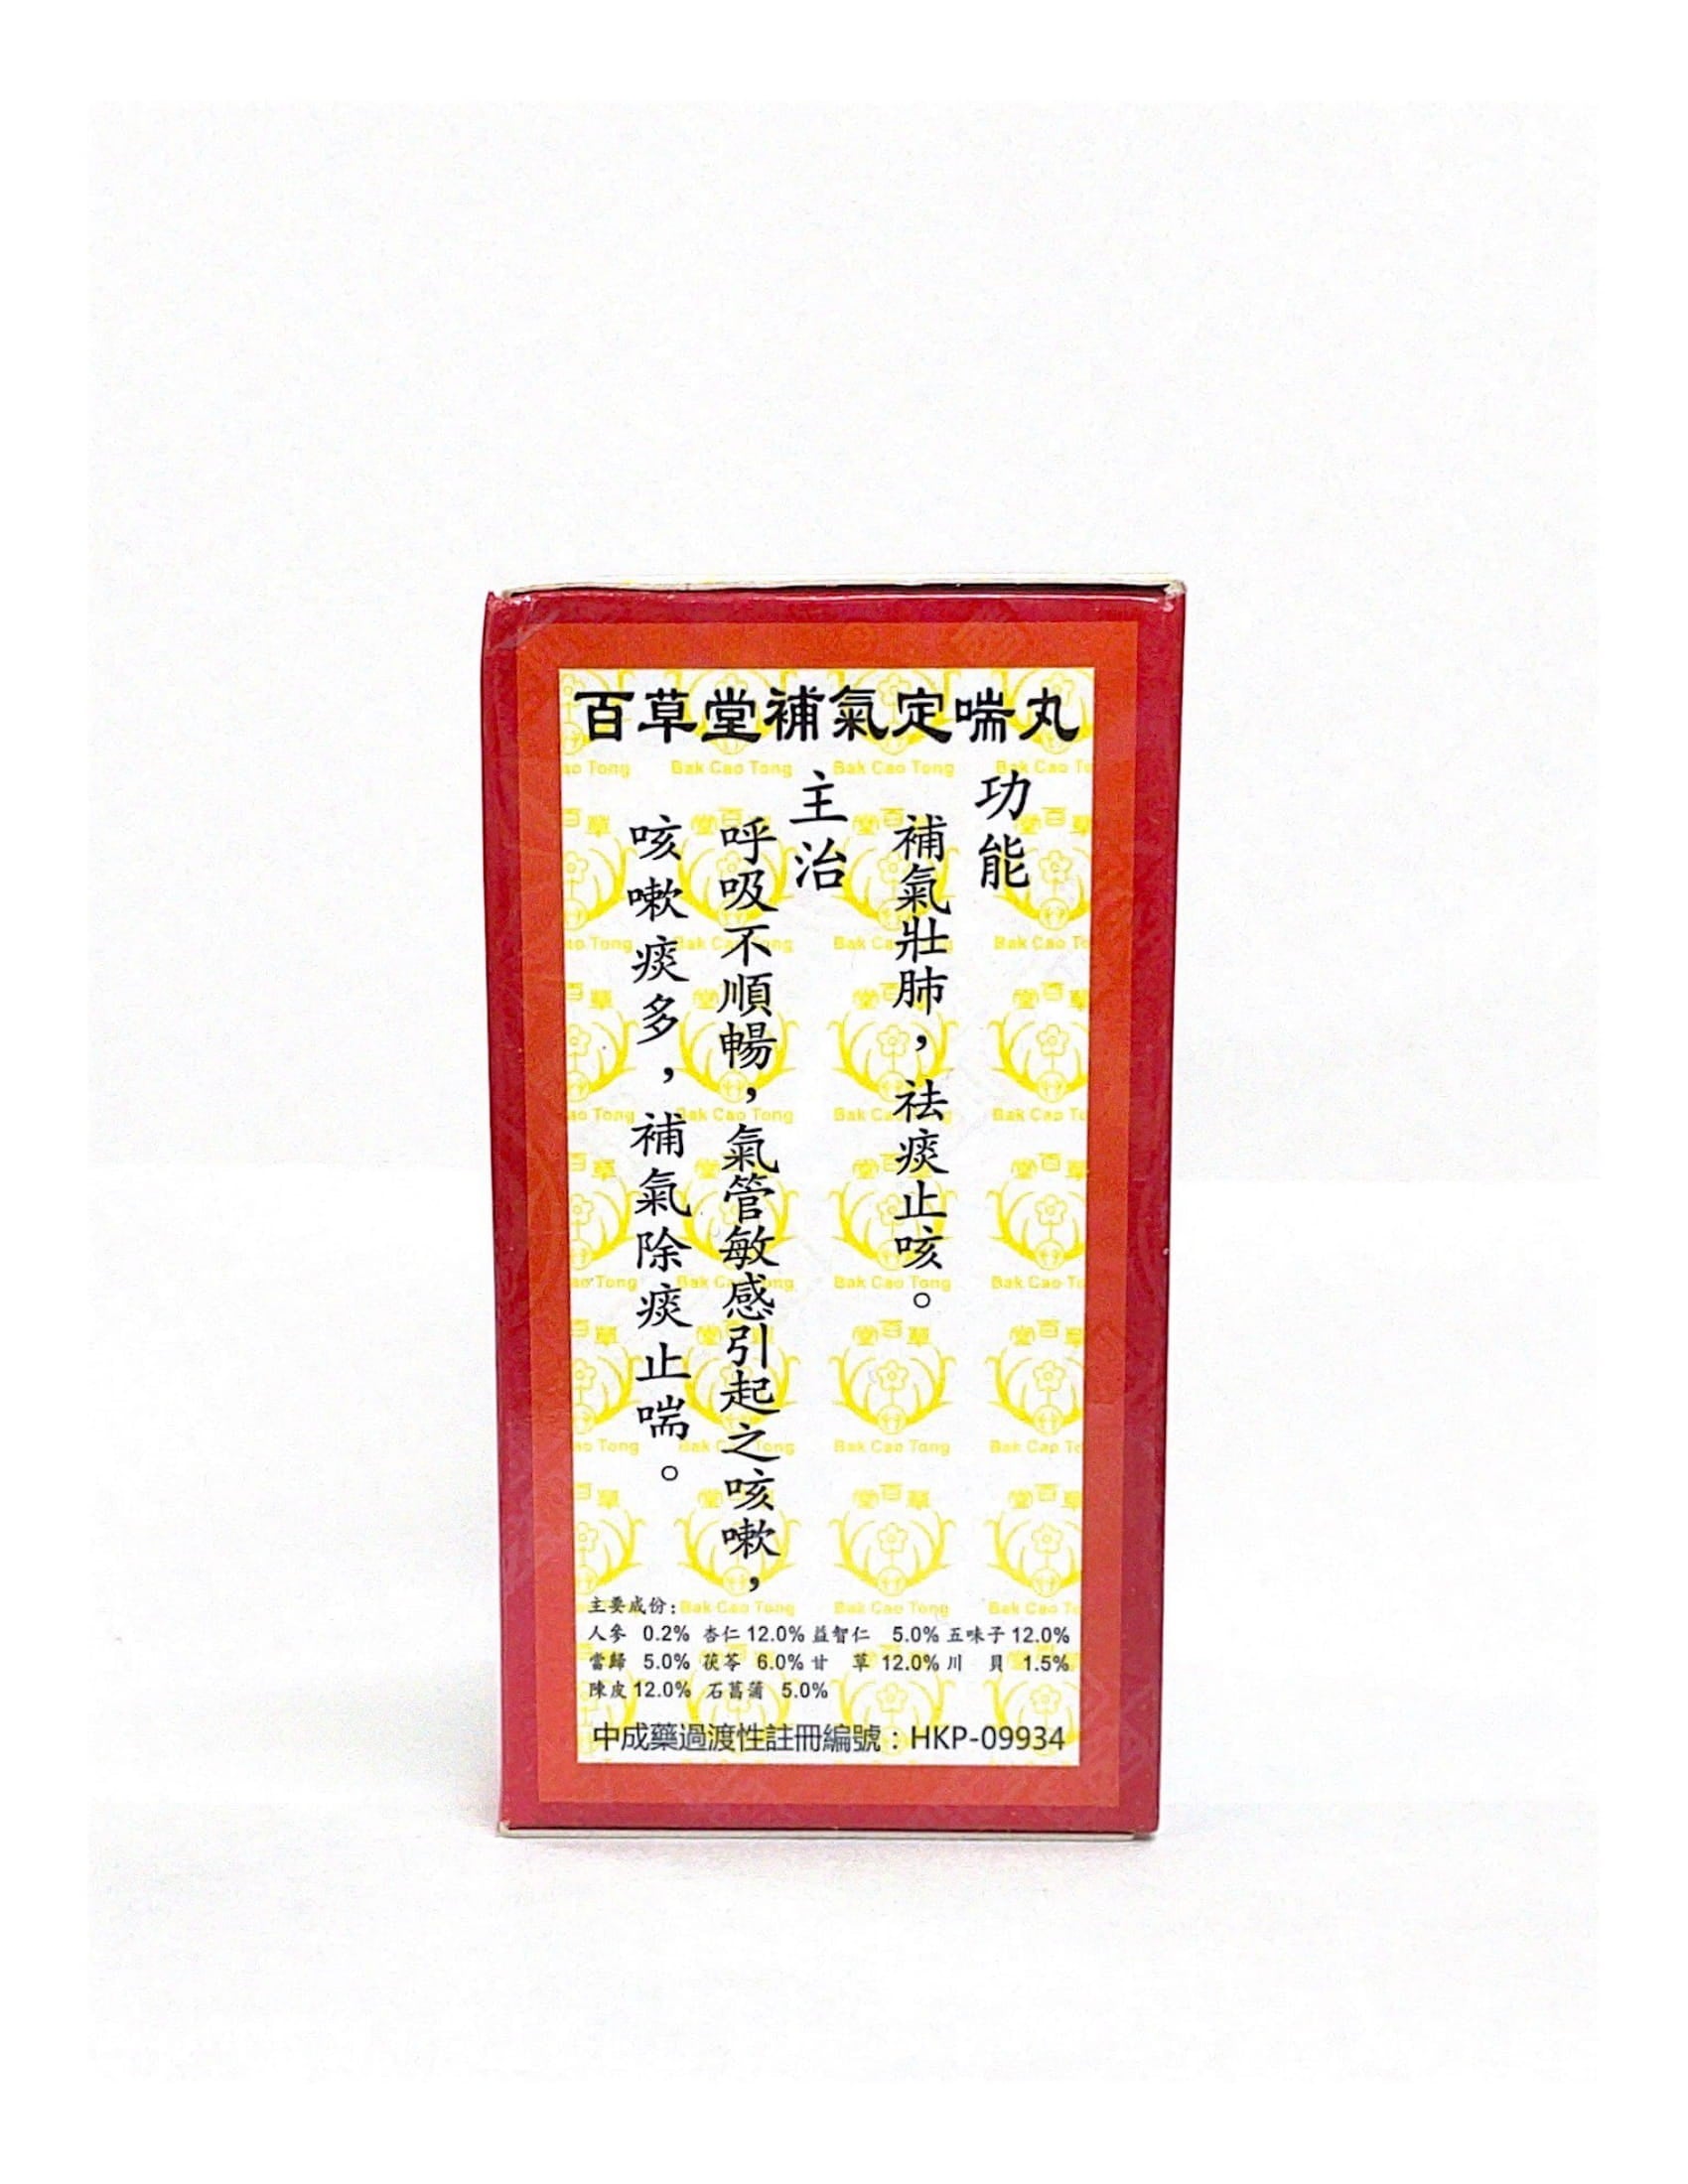 百草堂補氣定喘丸
功能
補氣壯肺，祛痰止咳。
主治
呼吸不順暢，氣管敏感引起之咳嗽，
咳嗽痰多，補氣除痰止喘。
主要成份：
人參 0.2% 杏仁 12.0% 益智仁 5.0% 五味子 12.0%
當歸 5.0% 茯苓 6.0% 甘 草 12.0% 川 貝 1.5%
陳皮 12.0% 石菖蒲 5.0%
中成藥過渡性註冊編號：HKP-09934
百草堂
Bak Cao Tong